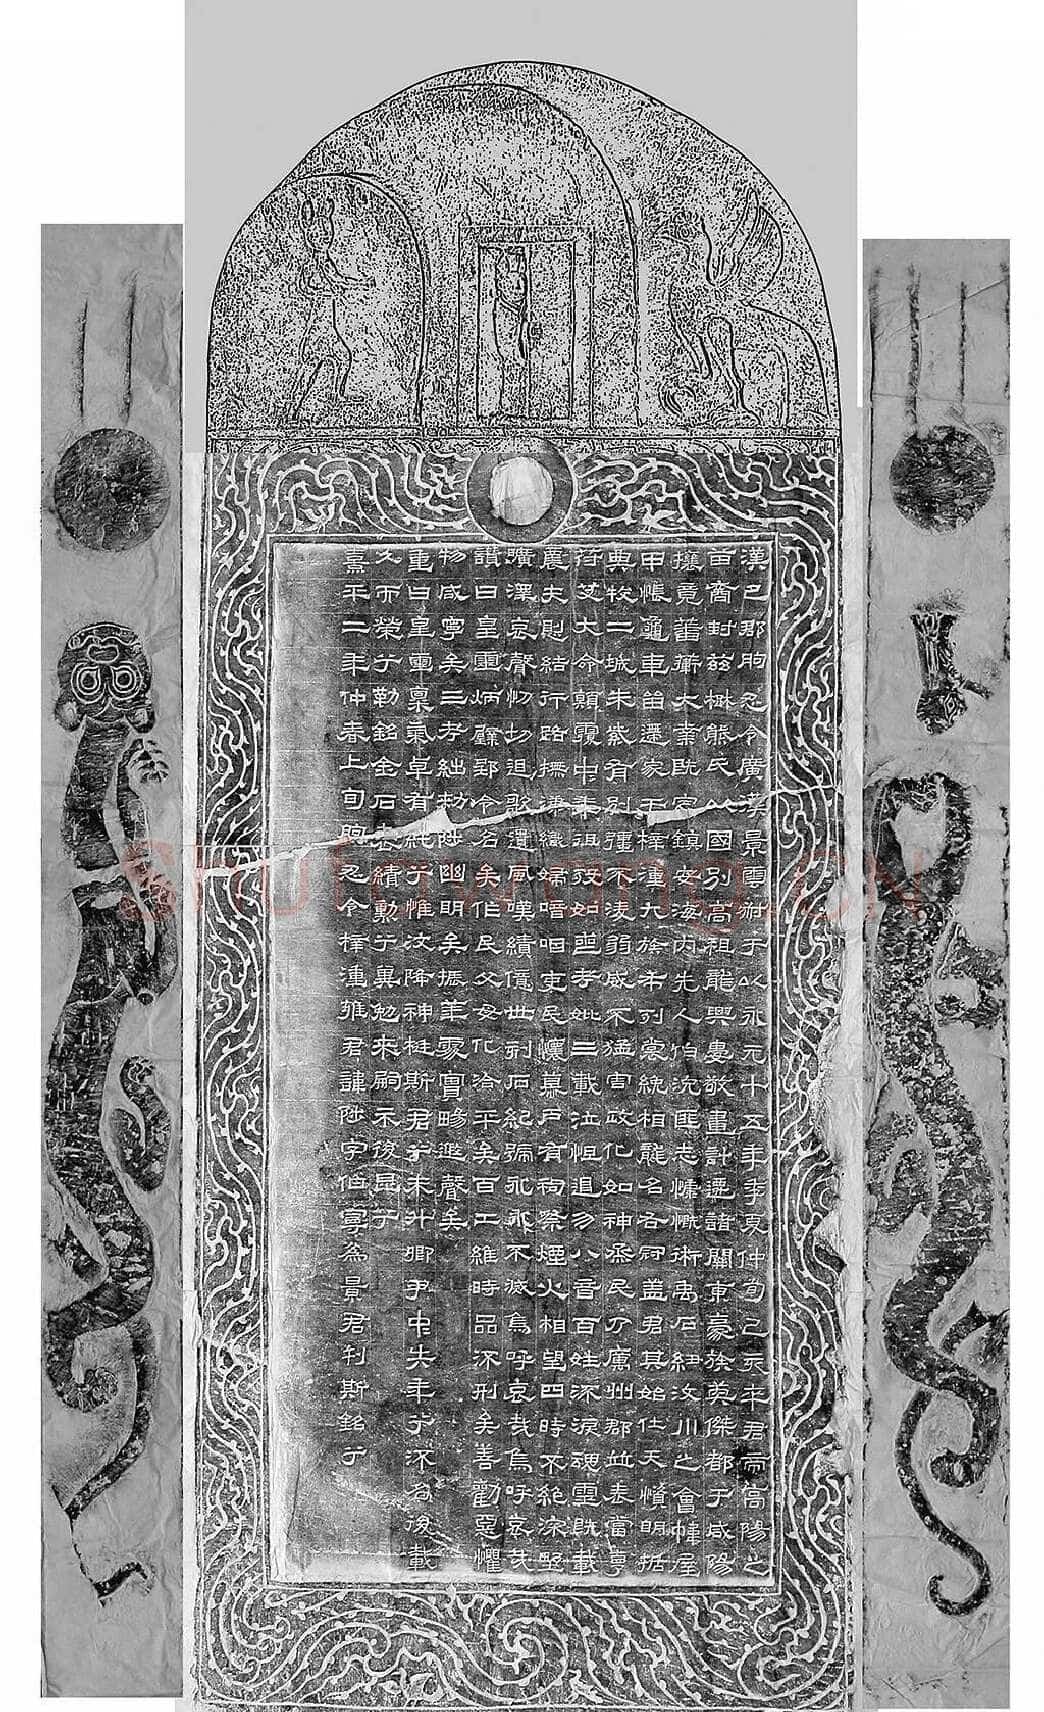 漢巴郡朐忍令廣漢景雲叔于以永元十五年季夏仲旬己亥卒君帝高陽之
苗裔封兹楚熊氏以國別高祖龍興婁敬畫計遷諸關東豪族英傑都于咸陽
攘竟蕃蘅大業既定鎮安海内先人伯沇匪志慷慨術禹石紐汶川之會幃屋
甲帳龜車留遷家于梓潼九族布列裳絻相龍名右冠盖君其始仕天資明括
典牧二城朱紫有別彊不凌弱威不猛害政化如神烝民乃厲州郡並表當亨
苻艾大命顛覆中年徂殁如喪考妣三載泣怛遏勿八音百姓流淚魂靈既載
農夫恻結行路撫涕織婦喑咽吏民懷慕户有祠祭煙火相望四時不絶深野
曠澤哀聲忉切追歌遺風嘆績億世刻石紀號永永不滅烏呼哀哉烏呼哀哉
讚曰皇靈炳璧郢令名矣作民父母化洽平矣百工維時品流刑矣善勸惡懼
物咸寧矣三考絀敕陟幽明矣振華處實暘遐聲矣
重曰皇靈稟氣卓有純兮惟汶降神梃斯君兮未升卿尹中失年兮流名後載
久而榮兮勒銘金石表績勳兮冀勉來嗣示後昆兮
熹平二年仲春上旬朐忍令梓潼雍君諱陟字伯寧為景君刊斯銘兮
Shufawang.CN